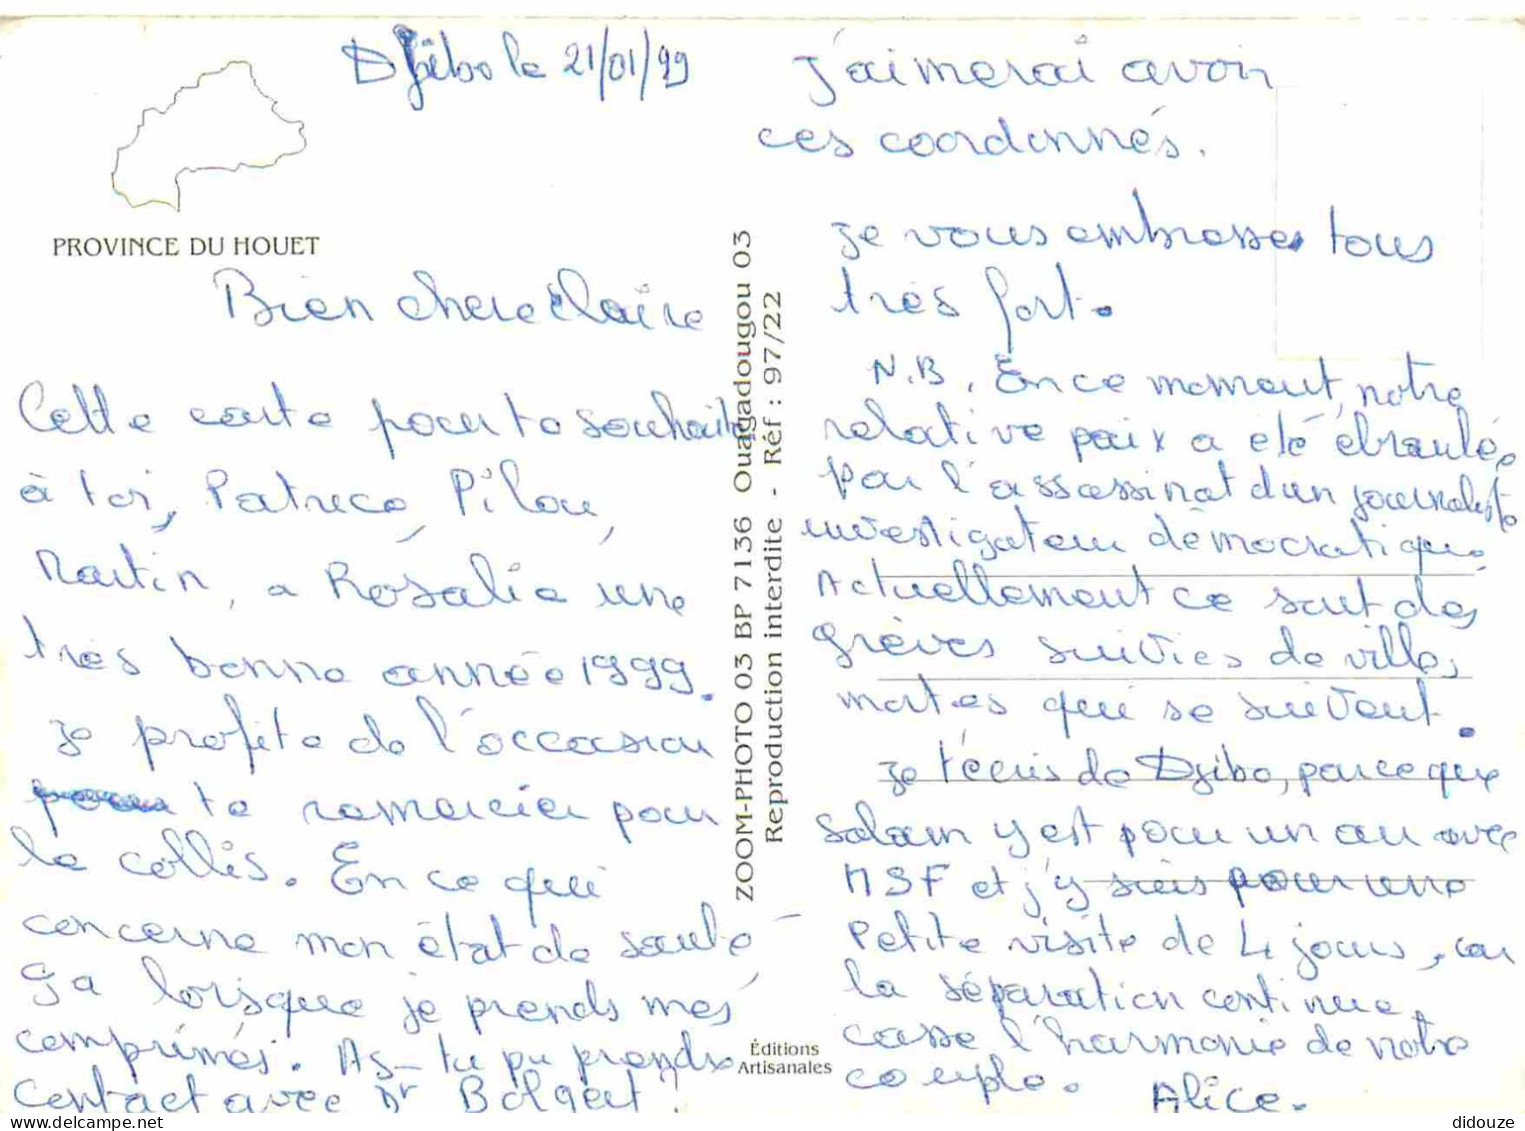 Djibo le 21/01/99
PROVINCE DU HOUET
Bien chere Claire
Cette carte pour te souhaiter
à toi, Patrece, Pilou,
Martin, a Rosalie une
très bonne année 1999.
Je profite de l'occasion
pour te remercier pour
le collis. En ce qui
concerne mon état de santé
ça lorsque je prends mes
comprimés. As-tu pu prendre
Contact avec Dr Bolgert.
ZOOM-PHOTO 03 BP 7136 Ouagadougou 03
Reproduction interdite - Réf : 97/22
Éditions
Artisanales
J'aimerai avoir
ces coordonnés.
Je vous embrasses tous
très fort.
N.B. En ce moment, notre
relative paix a été ébranlée
par l'assassinat d'un journaliste
investigateur démocratique.
Actuellement ce sont des
grèves suivies de villes
mortes qui se suivent.
Je t'écris de Djibo, parce que
Salam y est pour un an avec
MSF et j'y suis pour une
Petite visite de 4 jours, car
la séparation continue
casse l'harmonie de notre
couple.
Alice.
didouze